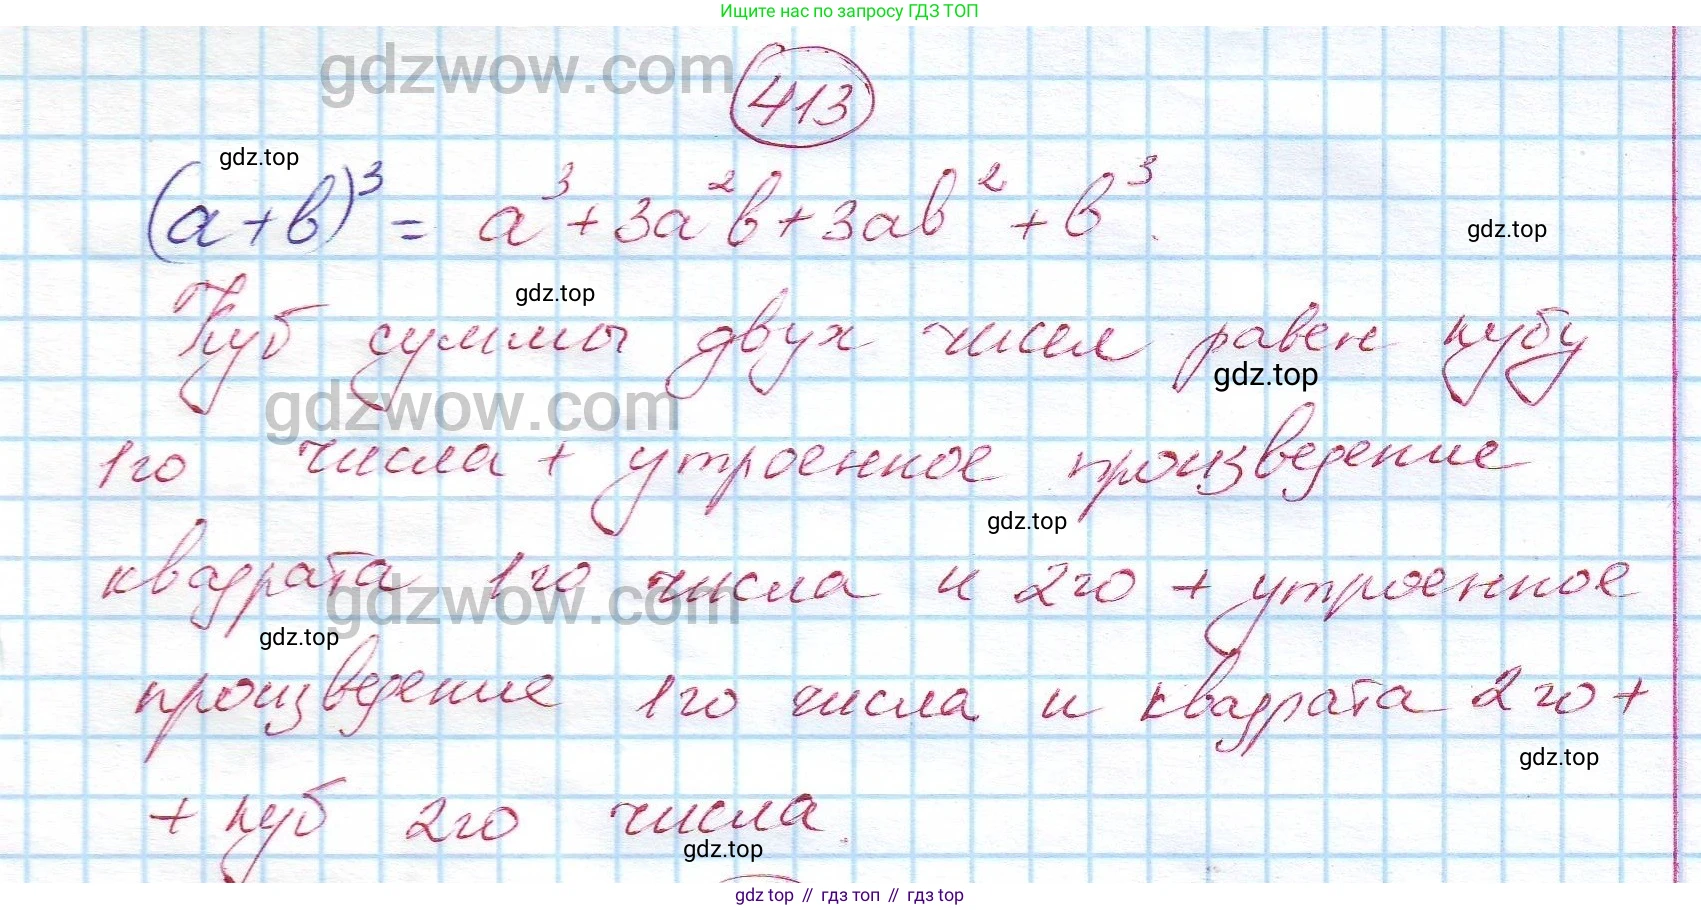 Ищите нас по запросу ГДЗ ТОП
gdzwow.com
413
gdz.top
(a+b)³ = a³+3a²b+3ab²+b³.
gdz.top
gdz.top
Куб суммы двух чисел равен кубу
gdz.top
gdzwow.com
1го числа + утроенное произведение
gdz.top
квадрата 1го числа и 2го + утроенное
gdzwow.com
gdz.top
произведение 1го числа и квадрата 2го +
gdz.top
+ куб 2го числа.
gdz.top
gdz top // гдз топ // гдз top